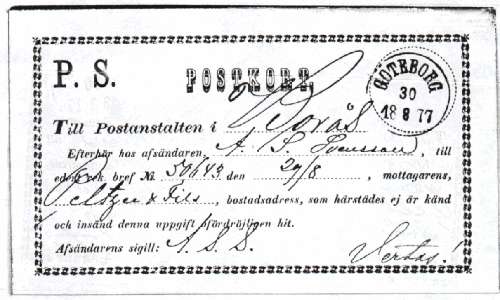 P. S. POSTKORT.
GÖTEBORG
30
18 8 77
Till Postanstalten i Borås
Efterhör hos afsändaren, A. S. Svensson, till
eder rek. bref № 50643 den 29/8, mottagarens,
Peltzer & Fils, bostadsadress, som härstädes ej är känd
och insänd denna uppgift ofördröjligen hit.
Afsändarens sigill: A. S. S.